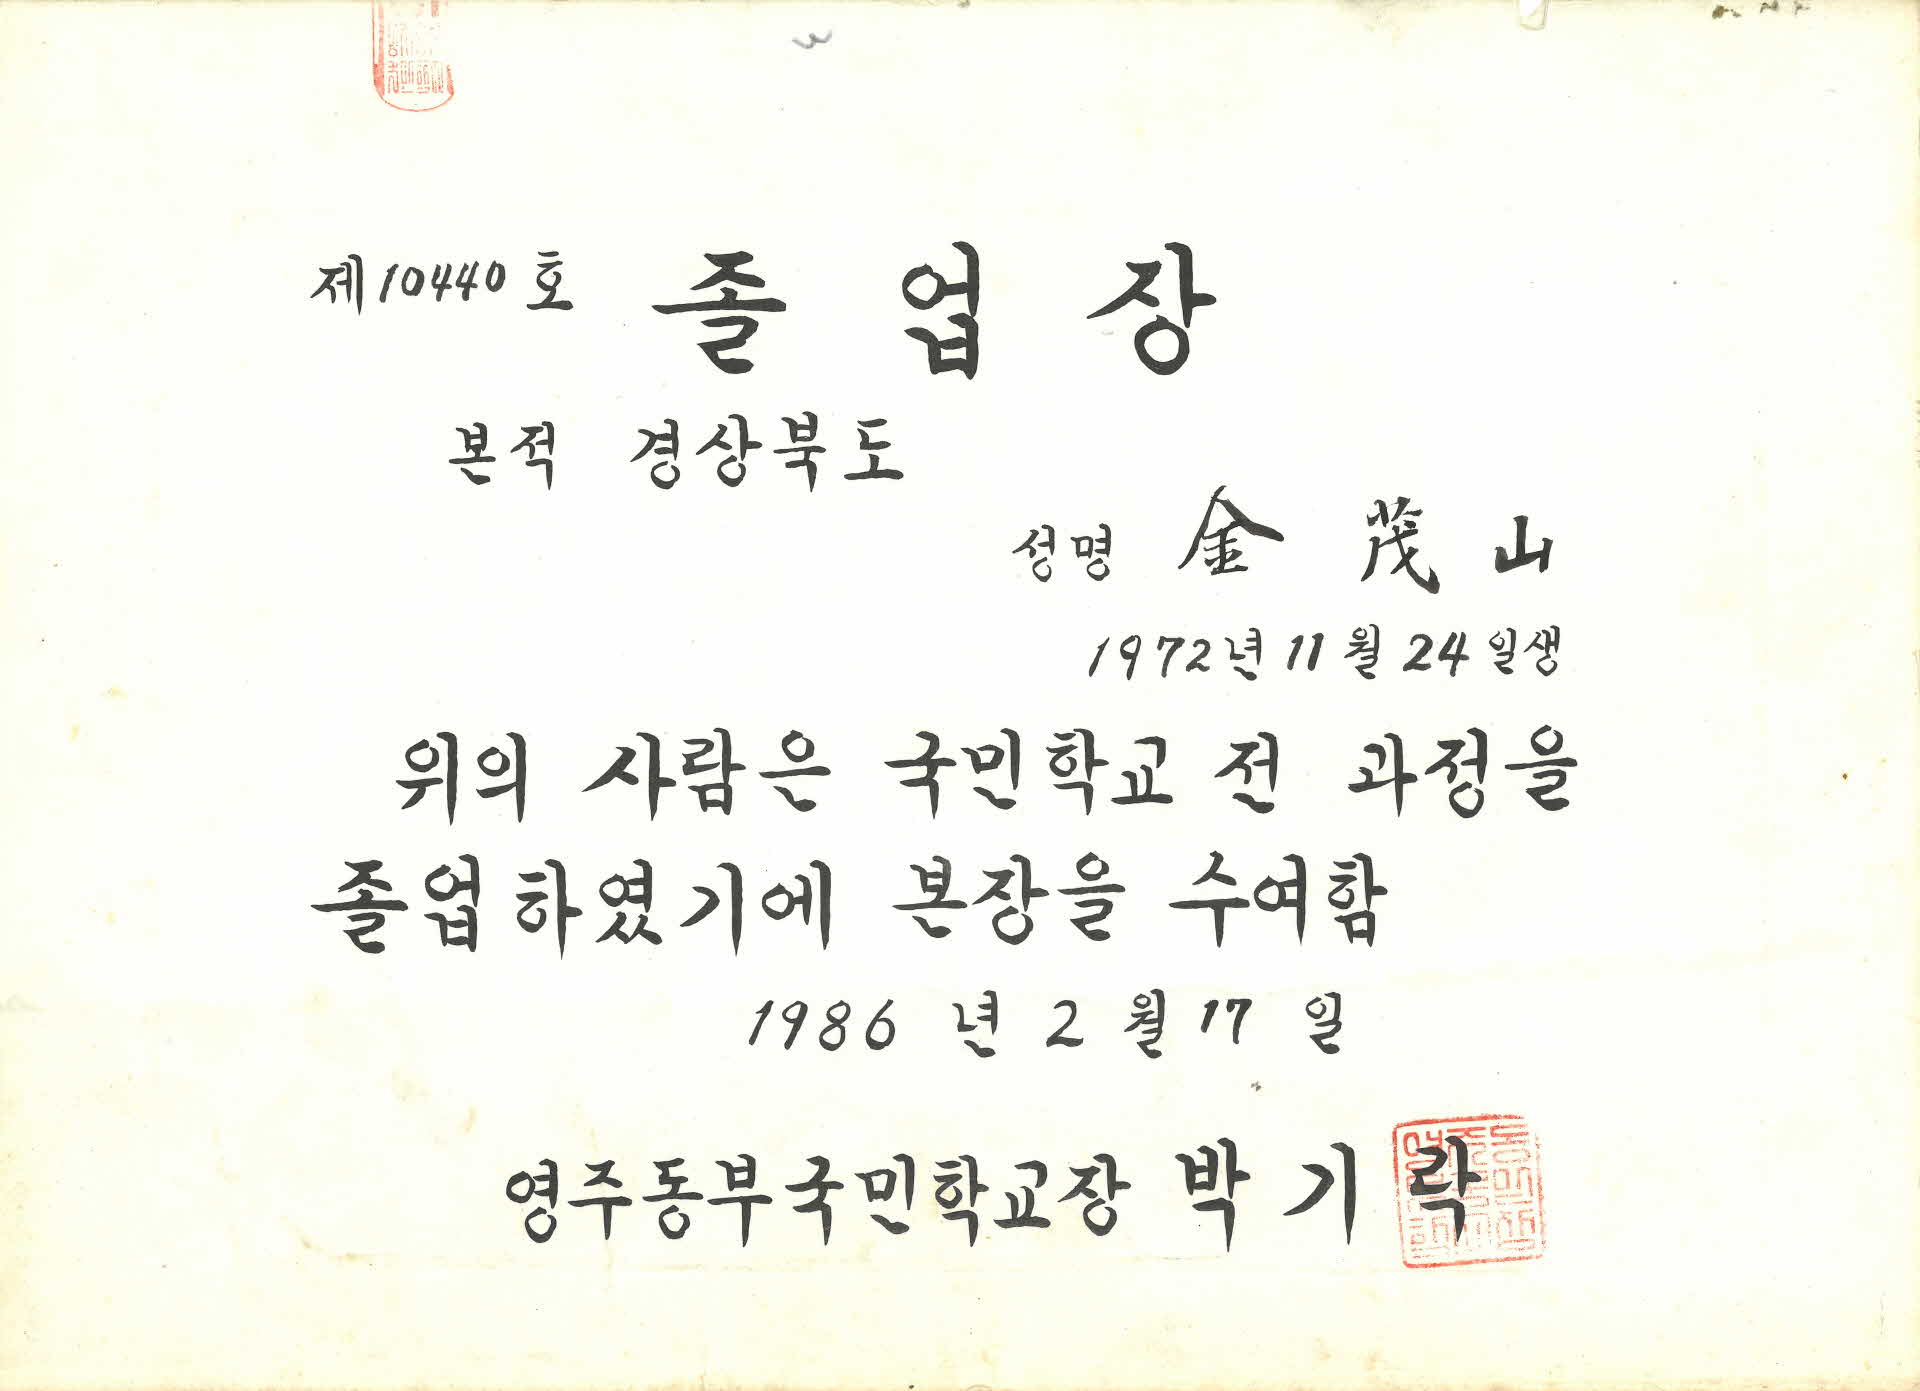 제10440호 졸업장
본적 경상북도
성명 金茂山
1972년 11월 24일생
위의 사람은 국민학교 전 과정을
졸업하였기에 본장을 수여함
1986년 2월 17일
영주동부국민학교장 박기락